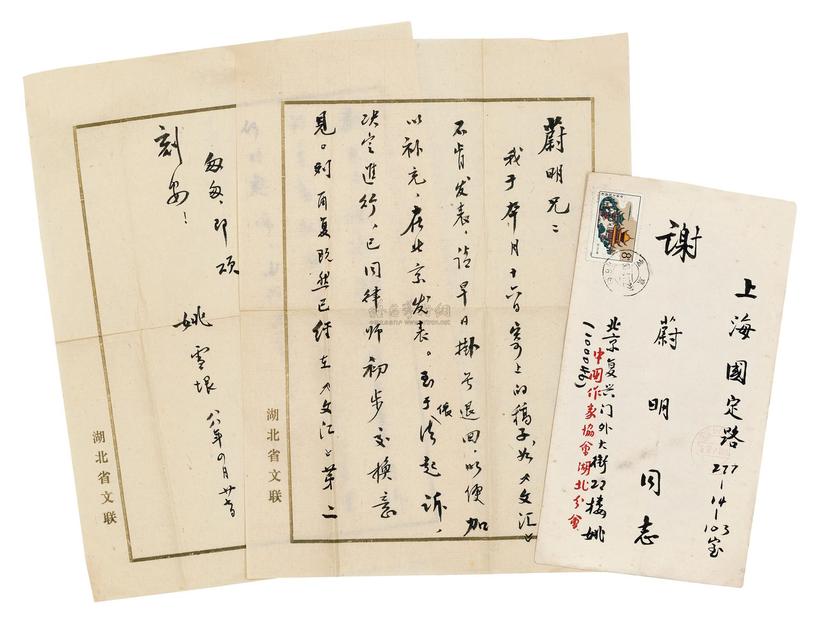 蔚明兄：
我于本月十六日寄上的稿子，如《文汇》
不肯发表，请早日挂号退回，以便加
以补充，在北京发表。至于依法起诉，
决定进行，已同律师初步交换意
见。刘再复既然已经在《文汇》第二
湖北省文联
匆匆，即颂
刻安！
姚雪垠
八八年四月廿日
湖北省文联
上海國定路277-14-103室
谢蔚明同志
北京复兴门外大街22楼姚
中國作家協會湖北分會
(100046)